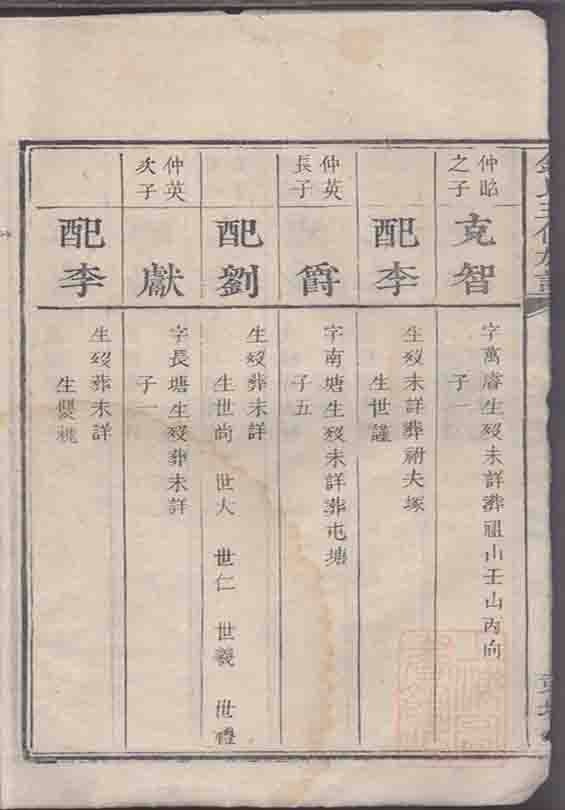 仲昭
之子
克智
字萬濬生歿未詳葬祖山壬山丙向
子一
配李
生歿未詳葬祔夫塚
生世謹
仲英
長子
爵
字南塘生歿未詳葬屯塘
子五
配劉
生歿葬未詳
生世尚 世大 世仁 世義 世禮
仲英
次子
獻
字長塘生歿葬未詳
子一
配李
生歿葬未詳
生